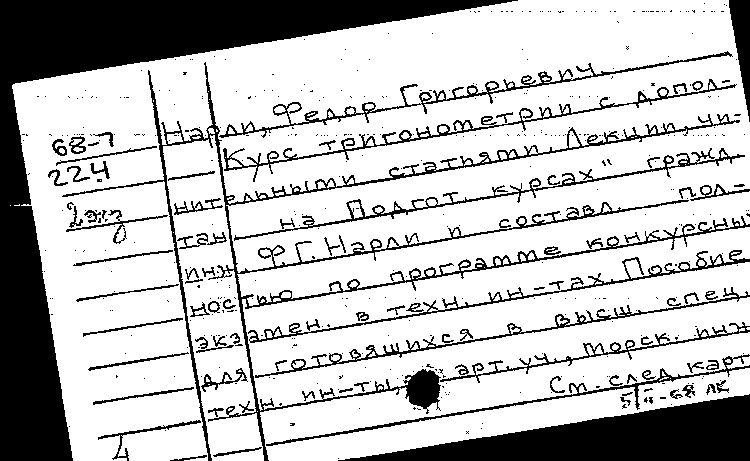 68-7
224
2 экз
Нарли, Федор Григорьевич.
Курс тригонометрии с допол=
нительными статьями. Лекции, чи-
тан. на Подгот. курсах" гражд.
инж. Ф.Г. Нарли и составл. пол=
ностью по программе конкурсны
экзамен. в техн. ин-тах. Пособие
для готовящихся в высш. спец.
техн. ин-ты, арт. уч., морск. инж
См. след. карт
4